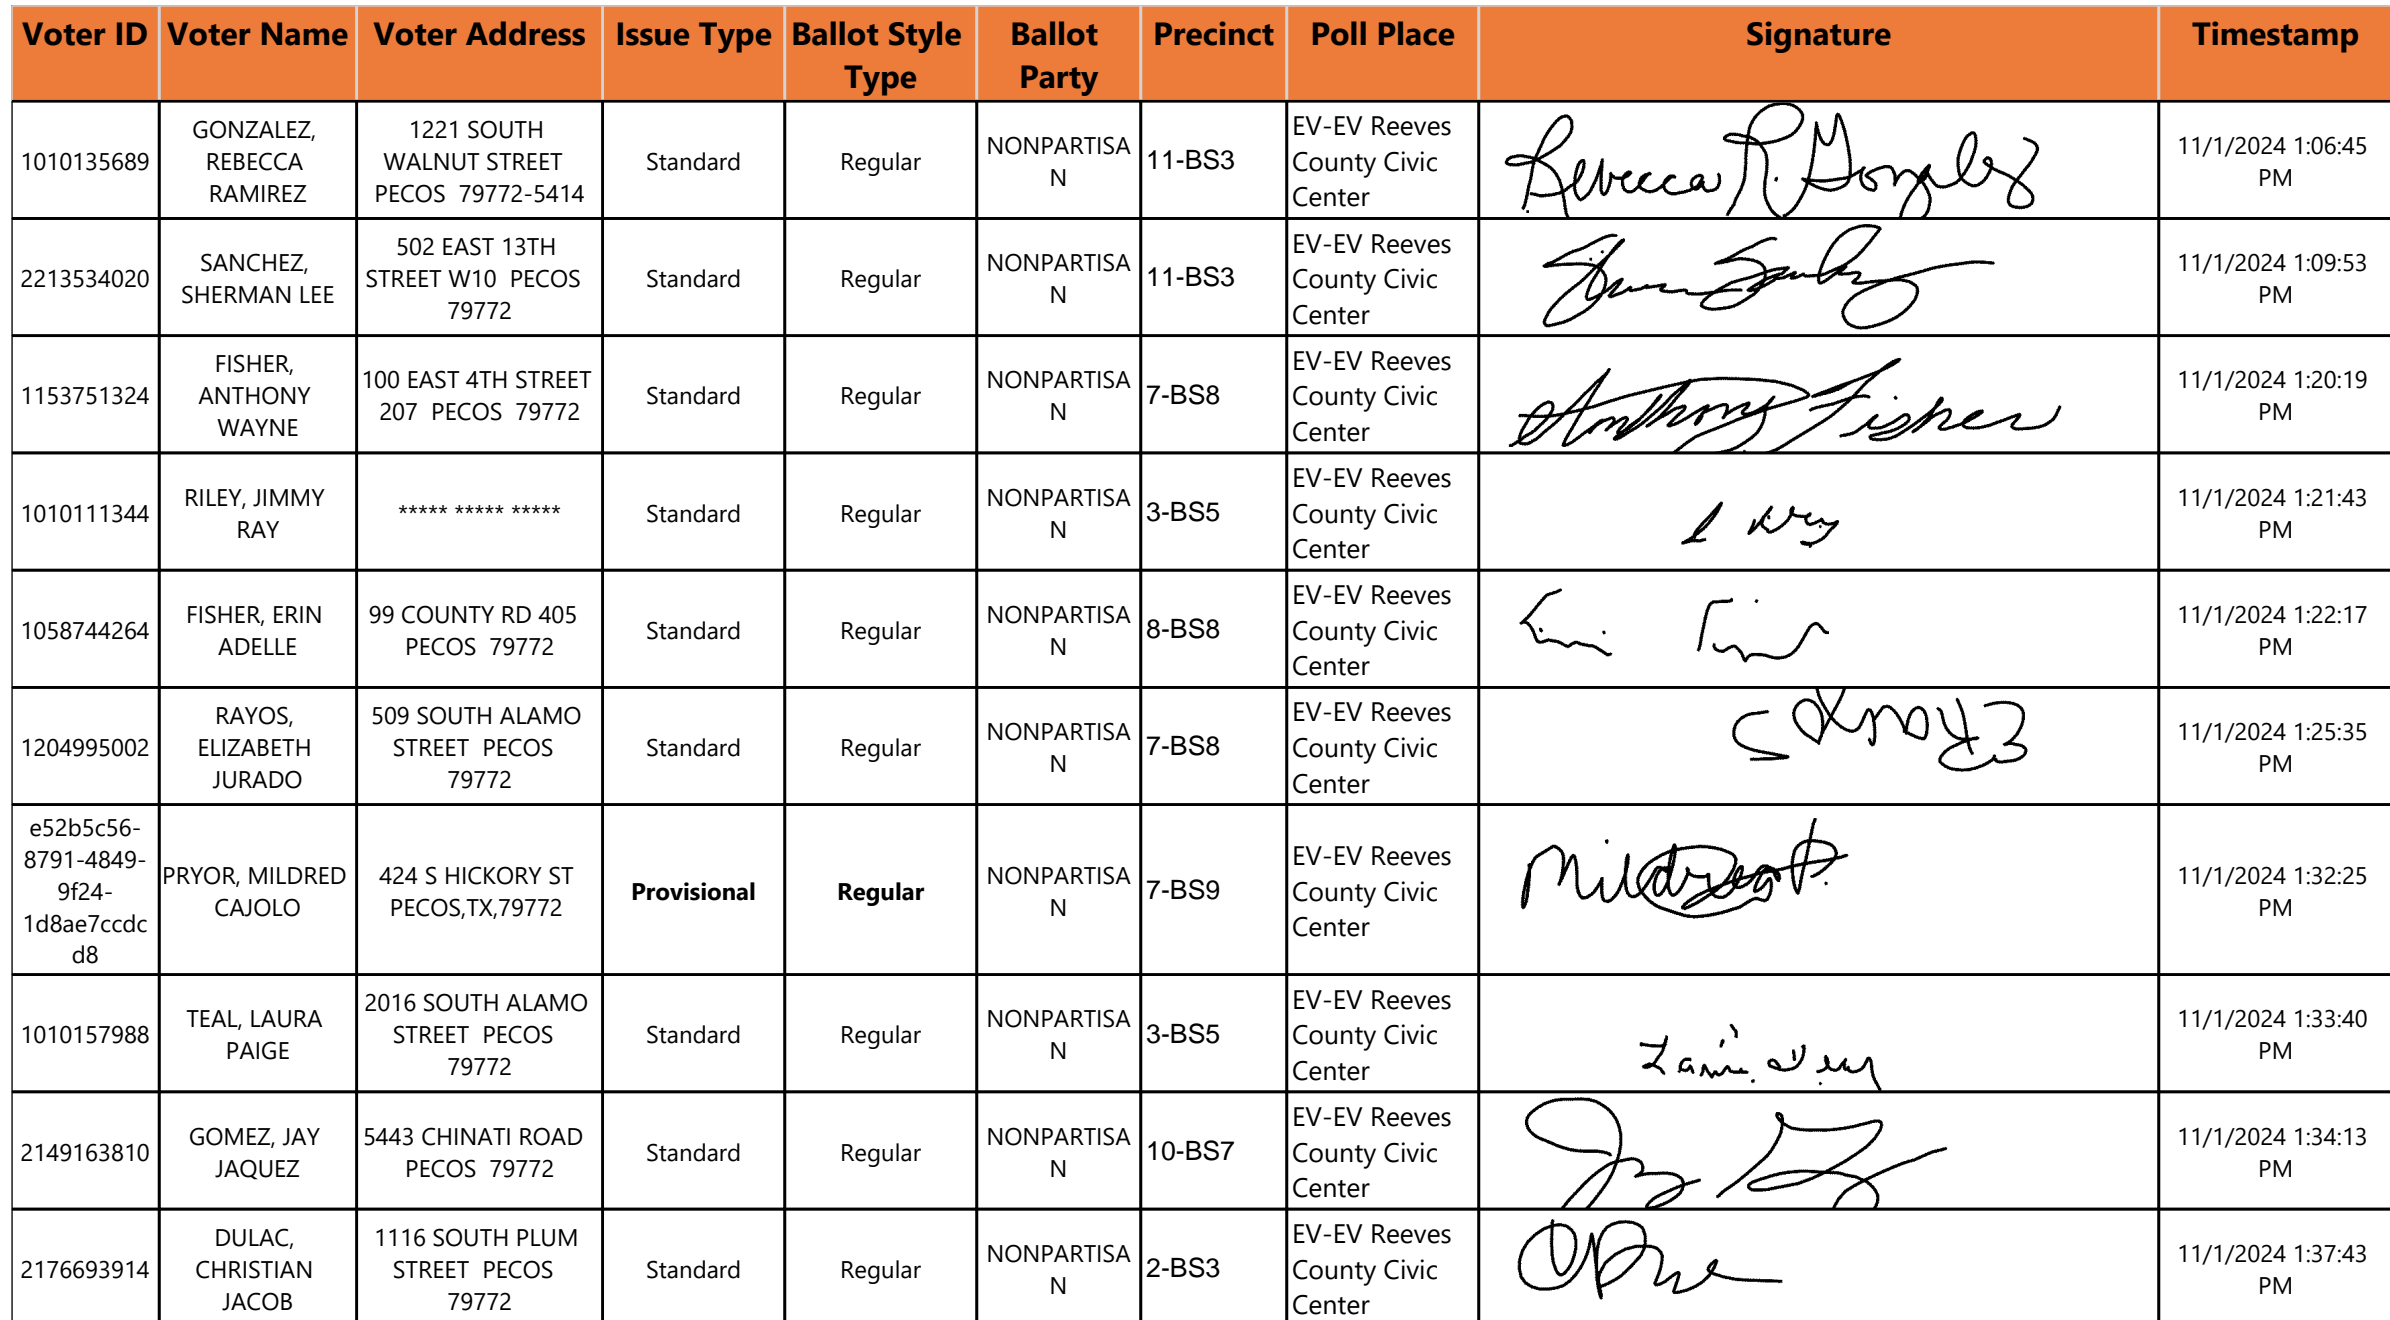 Voter ID Voter Name Voter Address Issue Type Ballot Style Type Ballot Party Precinct Poll Place Signature Timestamp
1010135689
GONZALEZ,
REBECCA
RAMIREZ
1221 SOUTH
WALNUT STREET
PECOS 79772-5414
Standard
Regular
NONPARTISA
N
11-BS3
EV-EV Reeves
County Civic
Center
Rebecca R. Gonzalez
11/1/2024 1:06:45
PM
2213534020
SANCHEZ,
SHERMAN LEE
502 EAST 13TH
STREET W10 PECOS
79772
Standard
Regular
NONPARTISA
N
11-BS3
EV-EV Reeves
County Civic
Center
11/1/2024 1:09:53
PM
1153751324
FISHER,
ANTHONY
WAYNE
100 EAST 4TH STREET
207 PECOS 79772
Standard
Regular
NONPARTISA
N
7-BS8
EV-EV Reeves
County Civic
Center
Anthony Fisher
11/1/2024 1:20:19
PM
1010111344
RILEY, JIMMY
RAY
***** ***** *****
Standard
Regular
NONPARTISA
N
3-BS5
EV-EV Reeves
County Civic
Center
11/1/2024 1:21:43
PM
1058744264
FISHER, ERIN
ADELLE
99 COUNTY RD 405
PECOS 79772
Standard
Regular
NONPARTISA
N
8-BS8
EV-EV Reeves
County Civic
Center
11/1/2024 1:22:17
PM
1204995002
RAYOS,
ELIZABETH
JURADO
509 SOUTH ALAMO
STREET PECOS
79772
Standard
Regular
NONPARTISA
N
7-BS8
EV-EV Reeves
County Civic
Center
11/1/2024 1:25:35
PM
e52b5c56-
8791-4849-
9f24-
1d8ae7ccdc
d8
PRYOR, MILDRED
CAJOLO
424 S HICKORY ST
PECOS,TX,79772
Provisional
Regular
NONPARTISA
N
7-BS9
EV-EV Reeves
County Civic
Center
11/1/2024 1:32:25
PM
1010157988
TEAL, LAURA
PAIGE
2016 SOUTH ALAMO
STREET PECOS
79772
Standard
Regular
NONPARTISA
N
3-BS5
EV-EV Reeves
County Civic
Center
11/1/2024 1:33:40
PM
2149163810
GOMEZ, JAY
JAQUEZ
5443 CHINATI ROAD
PECOS 79772
Standard
Regular
NONPARTISA
N
10-BS7
EV-EV Reeves
County Civic
Center
11/1/2024 1:34:13
PM
2176693914
DULAC,
CHRISTIAN
JACOB
1116 SOUTH PLUM
STREET PECOS
79772
Standard
Regular
NONPARTISA
N
2-BS3
EV-EV Reeves
County Civic
Center
11/1/2024 1:37:43
PM